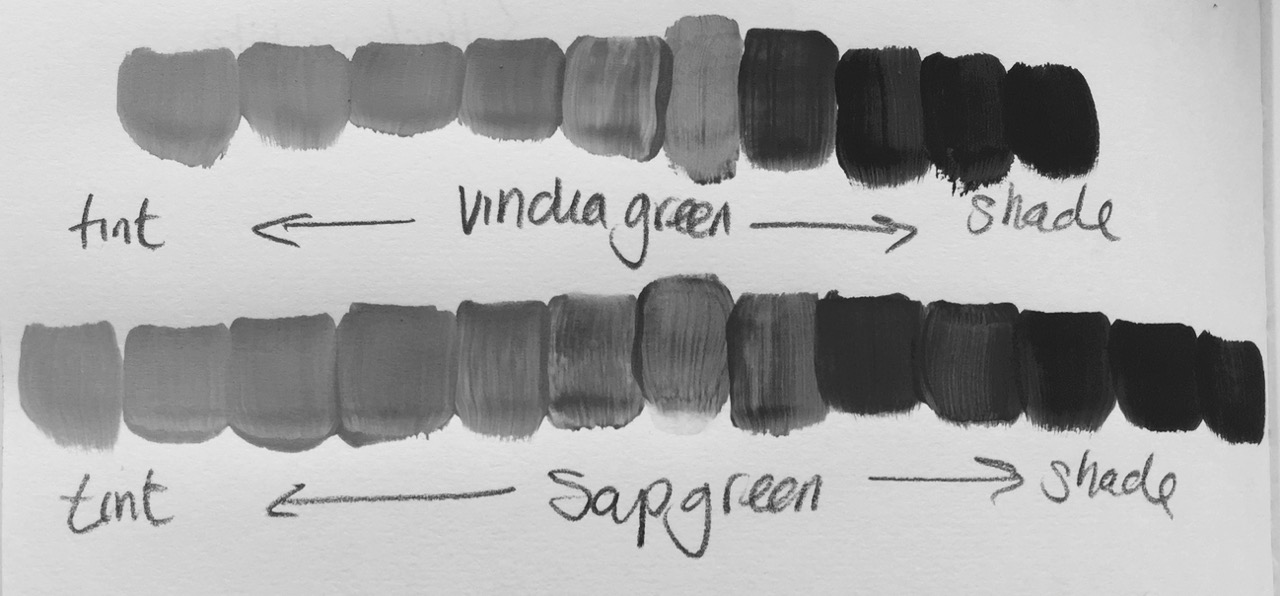 tint ← viridia green → shade
tint ← Sap green → shade